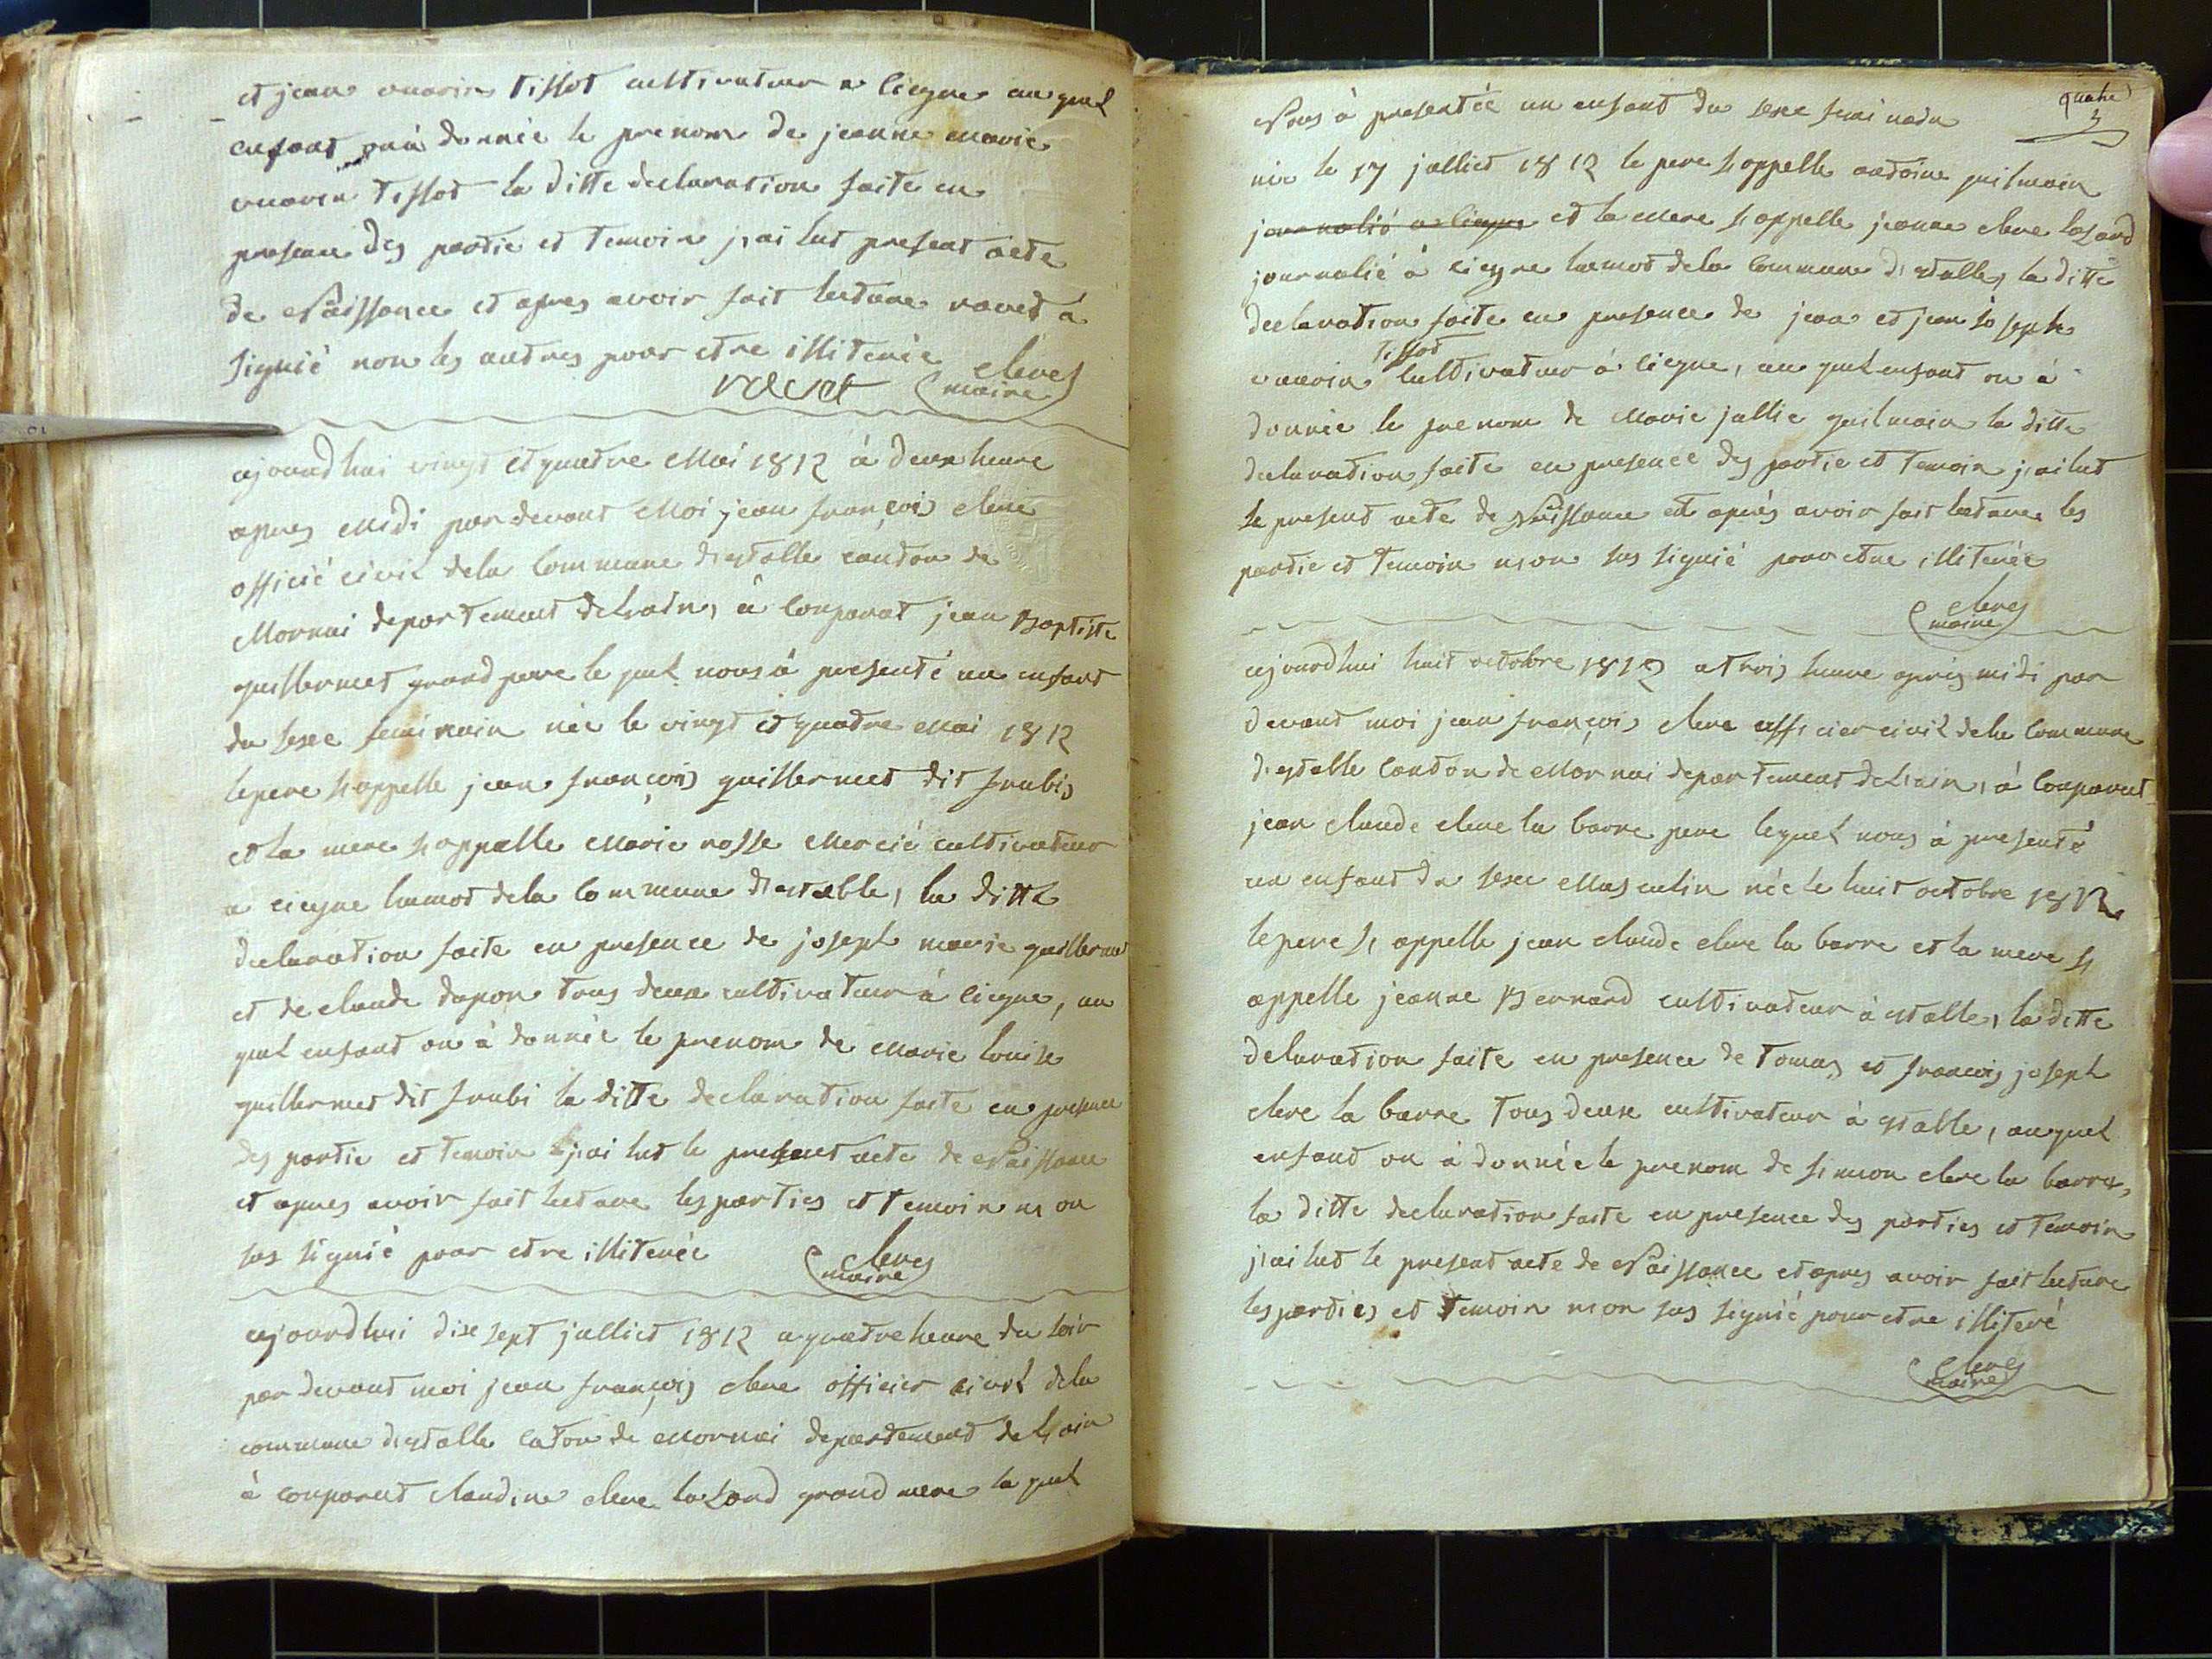 et jean marin tissot cultivateur a ciegne au quel
enfant on à donnée le prenom de jeanne marie
marin tissot la ditte declaration faite en
presence des partie et temoin j,ai lut present acte
de Naissance et apres avoir fait lecture ravet à
signié non les autres pour etre illiterée
ravet clere maire
ajourdhui vingt et quatre Mai 1812 à deux heure
apres Midi par devant Moi jean françois clere
officié civil dela Commune d,estable canton de
Mornai departement de l,ain, à Comparut jean Baptiste
guillermet grand pere le quel nous à presenté un enfant
du sexe feminain née le vingt et quatre Mai 1812
le pere s,appelle jean françois guillermet dit frubis
et la mere s,appelle Marie rosse Mercié cultivateur
a ciegne hamot dela Commune d,estable, la ditte
declaration faite en presence de joseph marie guillermet
et de claude dupon tous deux cultivateur à ciegne, au
quel enfant on à donnée le prenom de Marie louise
guillermet dit frubi la ditte declaration faite en presence
des partie et temoin j,ai lut le present acte de Naissance
et apres avoir fait lecture les parties et temoin n,on
sus signié pour etre illiterée
cleres maire
ajourdhui dix sept jullied 1812 a quatre heure du soir
par devant moi jean françois clere officier civil dela
commune d,estalle caton de Mornai departement de l,ain
à comparut claudine clere lasard grand mere la quel
quatre
Nous à presentée un enfant du sexe feminadn
née le 17 jullied 1812 le pere s,appelle antoine guilmain
journalié a ciegne et la Mere s,appelle jeanne clere lasard
journalié à ciegne hamot dela Commune d,estalle, la ditte
declaration faite en presence de jean et jean joseph
tissot
marin Cultivateur à ciegne, au quel enfant on à
donnée le prenom de Marie jullie guilmain la ditte
declaration faite en presence des partie et temoin j,ai lut
le present acte de Naissance et aprés avoir fait lecture les
partie et temoin n,on sus signié pour etre illiterée
cleres maire
ajourdhui huit octobre 1812 a trois heure aprés midi par
devant moi jean françois clere officier civil dela Commune
d,estalle Canton de Mornai departement de l,ain, à Comparut
jean claude clere la barre pere lequel nous à presenté
un enfant du sexe Masculin née le huit octobre 1812
le pere s, appelle jean claude clere la barre et la mere s,
appelle jeanne Bernard cultivateur à estalle, la ditte
delaration faite en presence de tomas et françois joseph
clere la barre tous deux cultivateur à estable, au quel
enfant on à donnée le prenom de simeon clere la barre,
la ditte declaration faite en presence des parties et temoin
j,ai lut le present acte de Naissance et apres avoir fait lecture
les parties et temoin n,on sus signié pour etre illiteré
cleres maire